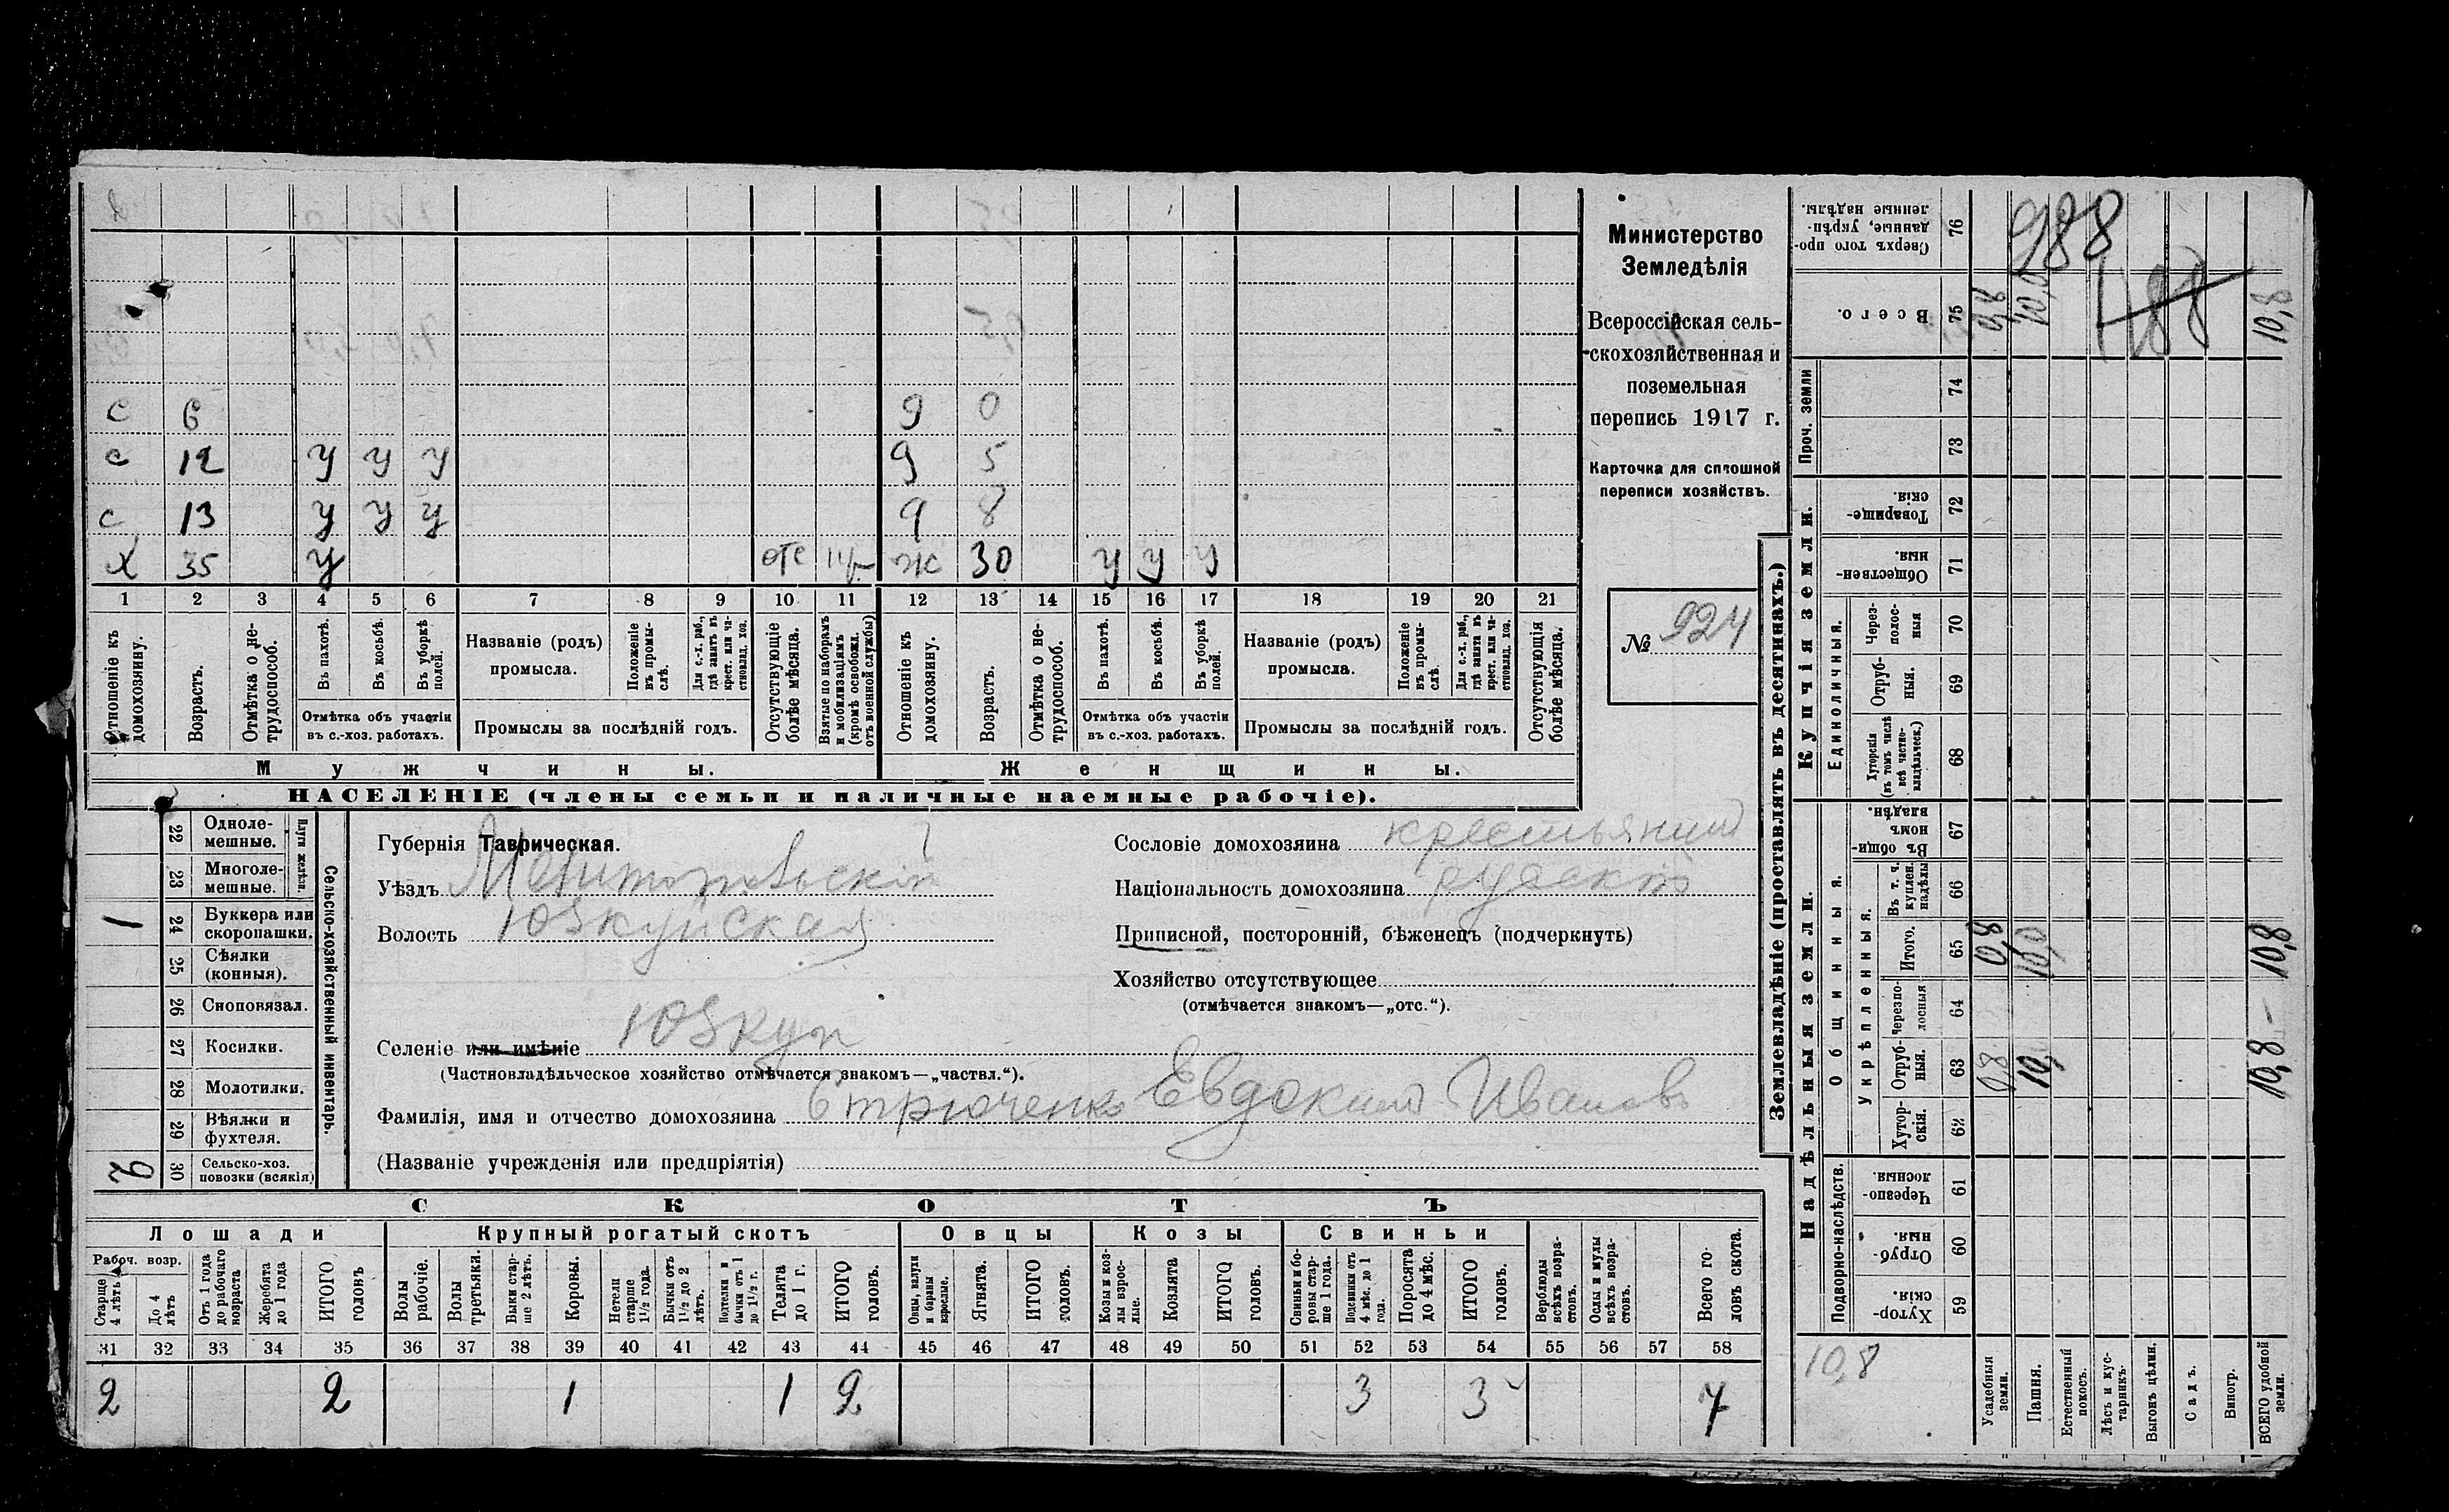 с 6 д 0
с 12 у у у д 5
с 13 у у у д 8
Х 35 у отс ж 30 у у у
1 2 3 4 5 6 7 8 9 10 11 12 13 14 15 16 17 18 19 20 21
Отношеніе къ домохозяину.
Возрастъ.
Отмѣтка о не-трудоспособ.
Въ пахотѣ.
Въ косьбѣ.
Въ уборкѣ полей.
Отмѣтка объ участіи
въ с.-хоз. работахъ.
Названіе (родъ)
промысла.
Положеніе въ промы-слѣ.
Для с.-х. раб., гдѣ занятъ въ крест. или ча-стновлад. хоз.
Промыслы за послѣдній годъ.
Отсутствующіе болѣе мѣсяца.
Взятые по наборамъ и мобилизаціямъ (кромѣ освобожд. отъ военной службы)
Отношеніе къ домохозяину.
Возрастъ.
Отмѣтка о не-трудоспособ.
Въ пахотѣ.
Въ косьбѣ.
Въ уборкѣ полей.
Отмѣтка объ участіи
въ с.-хоз. работахъ.
Названіе (родъ)
промысла.
Положеніе въ промы-слѣ
Для с.-х. раб., гдѣ занята въ крест. или ча-стновлад. хоз.
Промыслы за послѣдній годъ.
Отсутствующія болѣе мѣсяца.
Мужчины.
Женщины.
НАСЕЛЕНІЕ (члены семьи и наличные наемные рабочіе).
Министерство
Земледѣлія
Всероссійская сель-
скохозяйственная и
поземельная
перепись 1917 г.
Карточка для сплошной
переписи хозяйствъ.
№ 924
22 Одноле-мешные.
23 Многоле-мешные.
Плуги желѣзн.
1 24 Буккера или скоропашки.
25 Сѣялки (конныя).
26 Сноповязал.
27 Косилки.
28 Молотилки.
29 Вѣялки и фухтеля.
2 30 Сельско-хоз. повозки (всякія)
Сельско-хозяйственный инвентарь.
Губернія Таврическая.
Уѣздъ Мелитопольскій
Волость Юзкуйская
Селеніе или имѣніе Юзкуи
(Частновладѣльческое хозяйство отмѣчается знакомъ—„частвл.“).
Фамилія, имя и отчество домохозяина Стрюченко Евдокимъ Ивановъ
(Названіе учрежденія или предпріятія)
Сословіе домохозяина крестьянинъ
Національность домохозяина русскій
Приписной, посторонній, бѣженецъ (подчеркнуть)
Хозяйство отсутствующее
(отмѣчается знакомъ—„отс.“).
СКОТЪ
Лошади
Крупный рогатый скотъ
Овцы
Козы
Свиньи
Рабоч. возр.
Старше 4 лѣтъ
До 4 лѣтъ
Отъ 1 года до рабочаго возраста
Жеребята до 1 года
ИТОГО головъ
Волы рабочіе.
Волы третьяка.
Быки стар-ше 2 лѣтъ.
Коровы.
Нетели старше 1½ года.
Бычки отъ 1½ до 2 лѣтъ.
Подтелки и бычки отъ 1 до 1½ г.
Телята до 1 г.
ИТОГО головъ.
Овцы, валухи и бараны взрослые.
Ягнята.
ИТОГО головъ.
Козы и коз-лы взрос-лые.
Козлята
ИТОГО головъ.
Свиньи и бо-ровы стар-ше 1 года.
Подсвинки отъ 4 мѣс. до 1 года.
Поросята до 4 мѣс.
ИТОГО головъ.
Верблюды всѣхъ возра-стовъ.
Ослы и мулы всѣхъ возра-стовъ.
Всего го-ловъ скота.
31 32 33 34 35 36 37 38 39 40 41 42 43 44 45 46 47 48 49 50 51 52 53 54 55 56 57 58
2 2 1 1 2 3 3 7
Землевладѣніе (проставлять въ десятинахъ.)
Надѣльныя земли.
Купчія земли.
Проч. земли
Подворно-наслѣдств.
Общинныя.
Укрѣпленныя.
Единоличныя.
Хутор-скія. 59
Отруб-ныя. 60
Черезпо-лосныя. 61
Хутор-скія. 62
Отруб-ныя. 63 0,8 10, 10,8
Черезпо-лосныя 64
Итого. 65 0,8 10,0 10,8
Въ т. ч. куплен. надѣлы 66
Въ общи-номъ владѣн. 67
Хуторскія (въ томъ числѣ всѣ частно-владѣльческ.) 68
Отруб-ныя. 69
Через-полос-ныя 70
Обществен-ныя. 71
Товарище-скія. 72
73
74
Всего. 75 0,8 10,0 10,8
Сверхъ того про-данные, укрѣп-ленные надѣлы. 76
988
488
10,8
Усадебныя земли.
Пашня.
Естественный покосъ.
Лѣсъ и кус-тарникъ.
Выгонъ цѣлин.
Садъ.
Виногр.
ВСЕГО удобной земли.